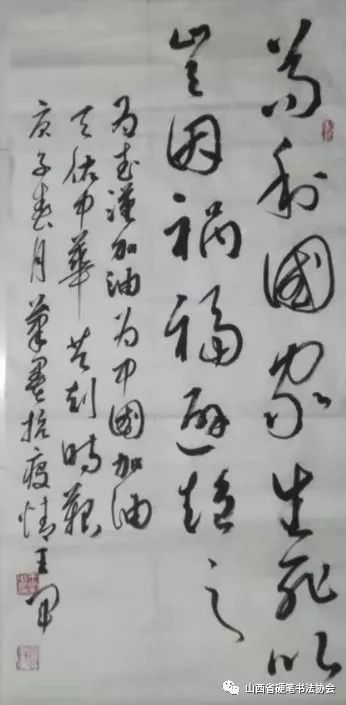 苟利國家生死以
豈因祸福避趋之
为武漢加油为中國加油
天佑中華共刻時艱
庚子春月筆墨抗疫情王军
山西省硬笔书法协会